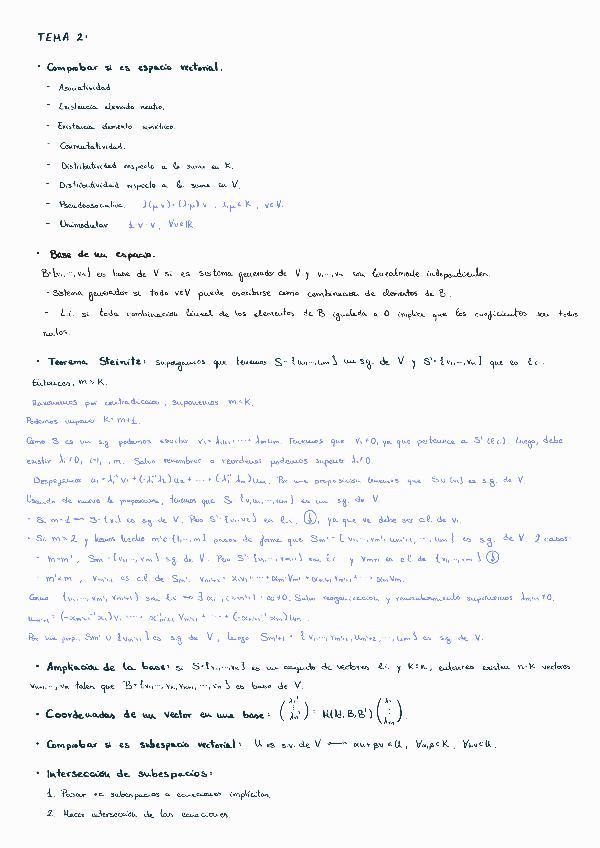 TEMA 2:
· Comprobar si es espacio vectorial.
- Asociatividad
- Existencia elemento neutro.
- Existencia elemento simétrico.
- Conmutatividad.
- Distributividad respecto a la suma en K.
- Distributividad respecto a la suma en V.
- Pseudoasociativa. λ(μv)=(λμ)v, λ,μ∈K, v∈V.
- Unimodular 1·v=v, ∀v∈
· Base de un espacio.
B={v₁,...,vₙ} es base de V si es sistema generador de V y v₁,...,vₙ son linealmente independientes.
- Sistema generador si todo v∈V puede escribirse como combinación de elementos de B.
- L.i. si toda combinación lineal de los elementos de B igualada a 0 implica que los coeficientes son todos
nulos.
· Teorema Steinitz: supongamos que tenemos S={u₁,...,uₘ} un s.g. de V y S'={v₁,...,vₖ} que es l.i.
Entonces, m≥K.
Razonamos por contradicción, suponemos m<K.
Podemos suponer K=m+1.
Como S es un s.g. podemos escribir v₁=λ₁u₁+...+λₘuₘ. Tenemos que v₁≠0, ya que pertenece a S' (l.i.). Luego, debe
existir λᵢ≠0, i=1,...,m. Salvo renombrar o reordenar podemos suponer λ₁≠0.
Despejamos u₁=λ₁⁻¹v₁+(-λ₁⁻¹λ₂)u₂+...+(-λ₁⁻¹λₘ)uₘ. Por una proposición tenemos que S∪{v₁} es s.g. de V.
Usando de nuevo la proposición, tenemos que S {v₁,u₂,...,uₘ} es un s.g. de V.
· Si m=1 S={v₁} es s.g. de V. Pero S'={v₁,v₂} es l.i., ya que v₂ debe ser c.l. de v₁.
· Si m≥2 y hemos hecho m'∈{1,...,m} pasos de forma que Sₘ'={v₁,...,vₘ',uₘ'₊₁,...,uₘ} es s.g. de V. 2 casos:
- m=m', Sₘ={v₁,...,vₘ} s.g. de V. Pero S'={v₁,...,vₘ₊₁} son l.i. y vₘ₊₁ es c.l. de {v₁,...,vₘ}
- m'<m, vₘ'₊₁ es c.l. de Sₘ'. vₘ'₊₁=α₁v₁+...+αₘ'vₘ'+αₘ'₊₁uₘ'₊₁+...+αₘuₘ.
Como {v₁,...,vₘ',vₘ'₊₁} son l.i. ∃ αᵢ, i≥m'+1 : αᵢ≠0. Salvo reorganización y renombramiento suponemos
Por una prop., Sₘ'∪{vₘ'₊₁} es s.g. de V, luego Sₘ'₊₁={v₁,...,vₘ'₊₁,uₘ'₊₂,...,uₘ} es s.g. de V.
· Ampliación de la base: si S={v₁,...,vₖ} es un conjunto de vectores l.i. y K<n, entonces existen n-K vectores
vₖ₊₁,...,vₙ tales que B={v₁,...,vₖ,vₖ₊₁,...,vₙ} es base de V.
· Coordenadas de un vector en una base: (λ₁' ⋮ λₙ') = M(Id,B,B') (λ₁ ⋮ λₙ).
· Comprobar si es subespacio vectorial: U es s.v. de V ⟷ αu+βv∈U, ∀α,β∈K, ∀u,v∈U.
· Intersección de subespacios:
1. Pasar subespacios a ecuaciones implícitas.
2. Hacer intersección de las ecuaciones.